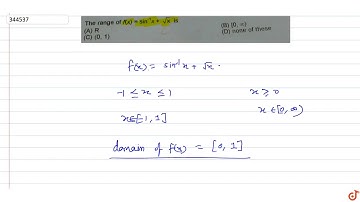 344537
The range of f(x) = sin⁻¹x + √x is
(A) R
(B) [0, ∞)
(C) (0, 1)
(D) none of these
f(x) = sin⁻¹x + √x .
-1 ≤ x ≤ 1 x ⩾ 0
x∈[-1, 1] x ∈[0, ∞)
domain of f(x) = [0, 1]